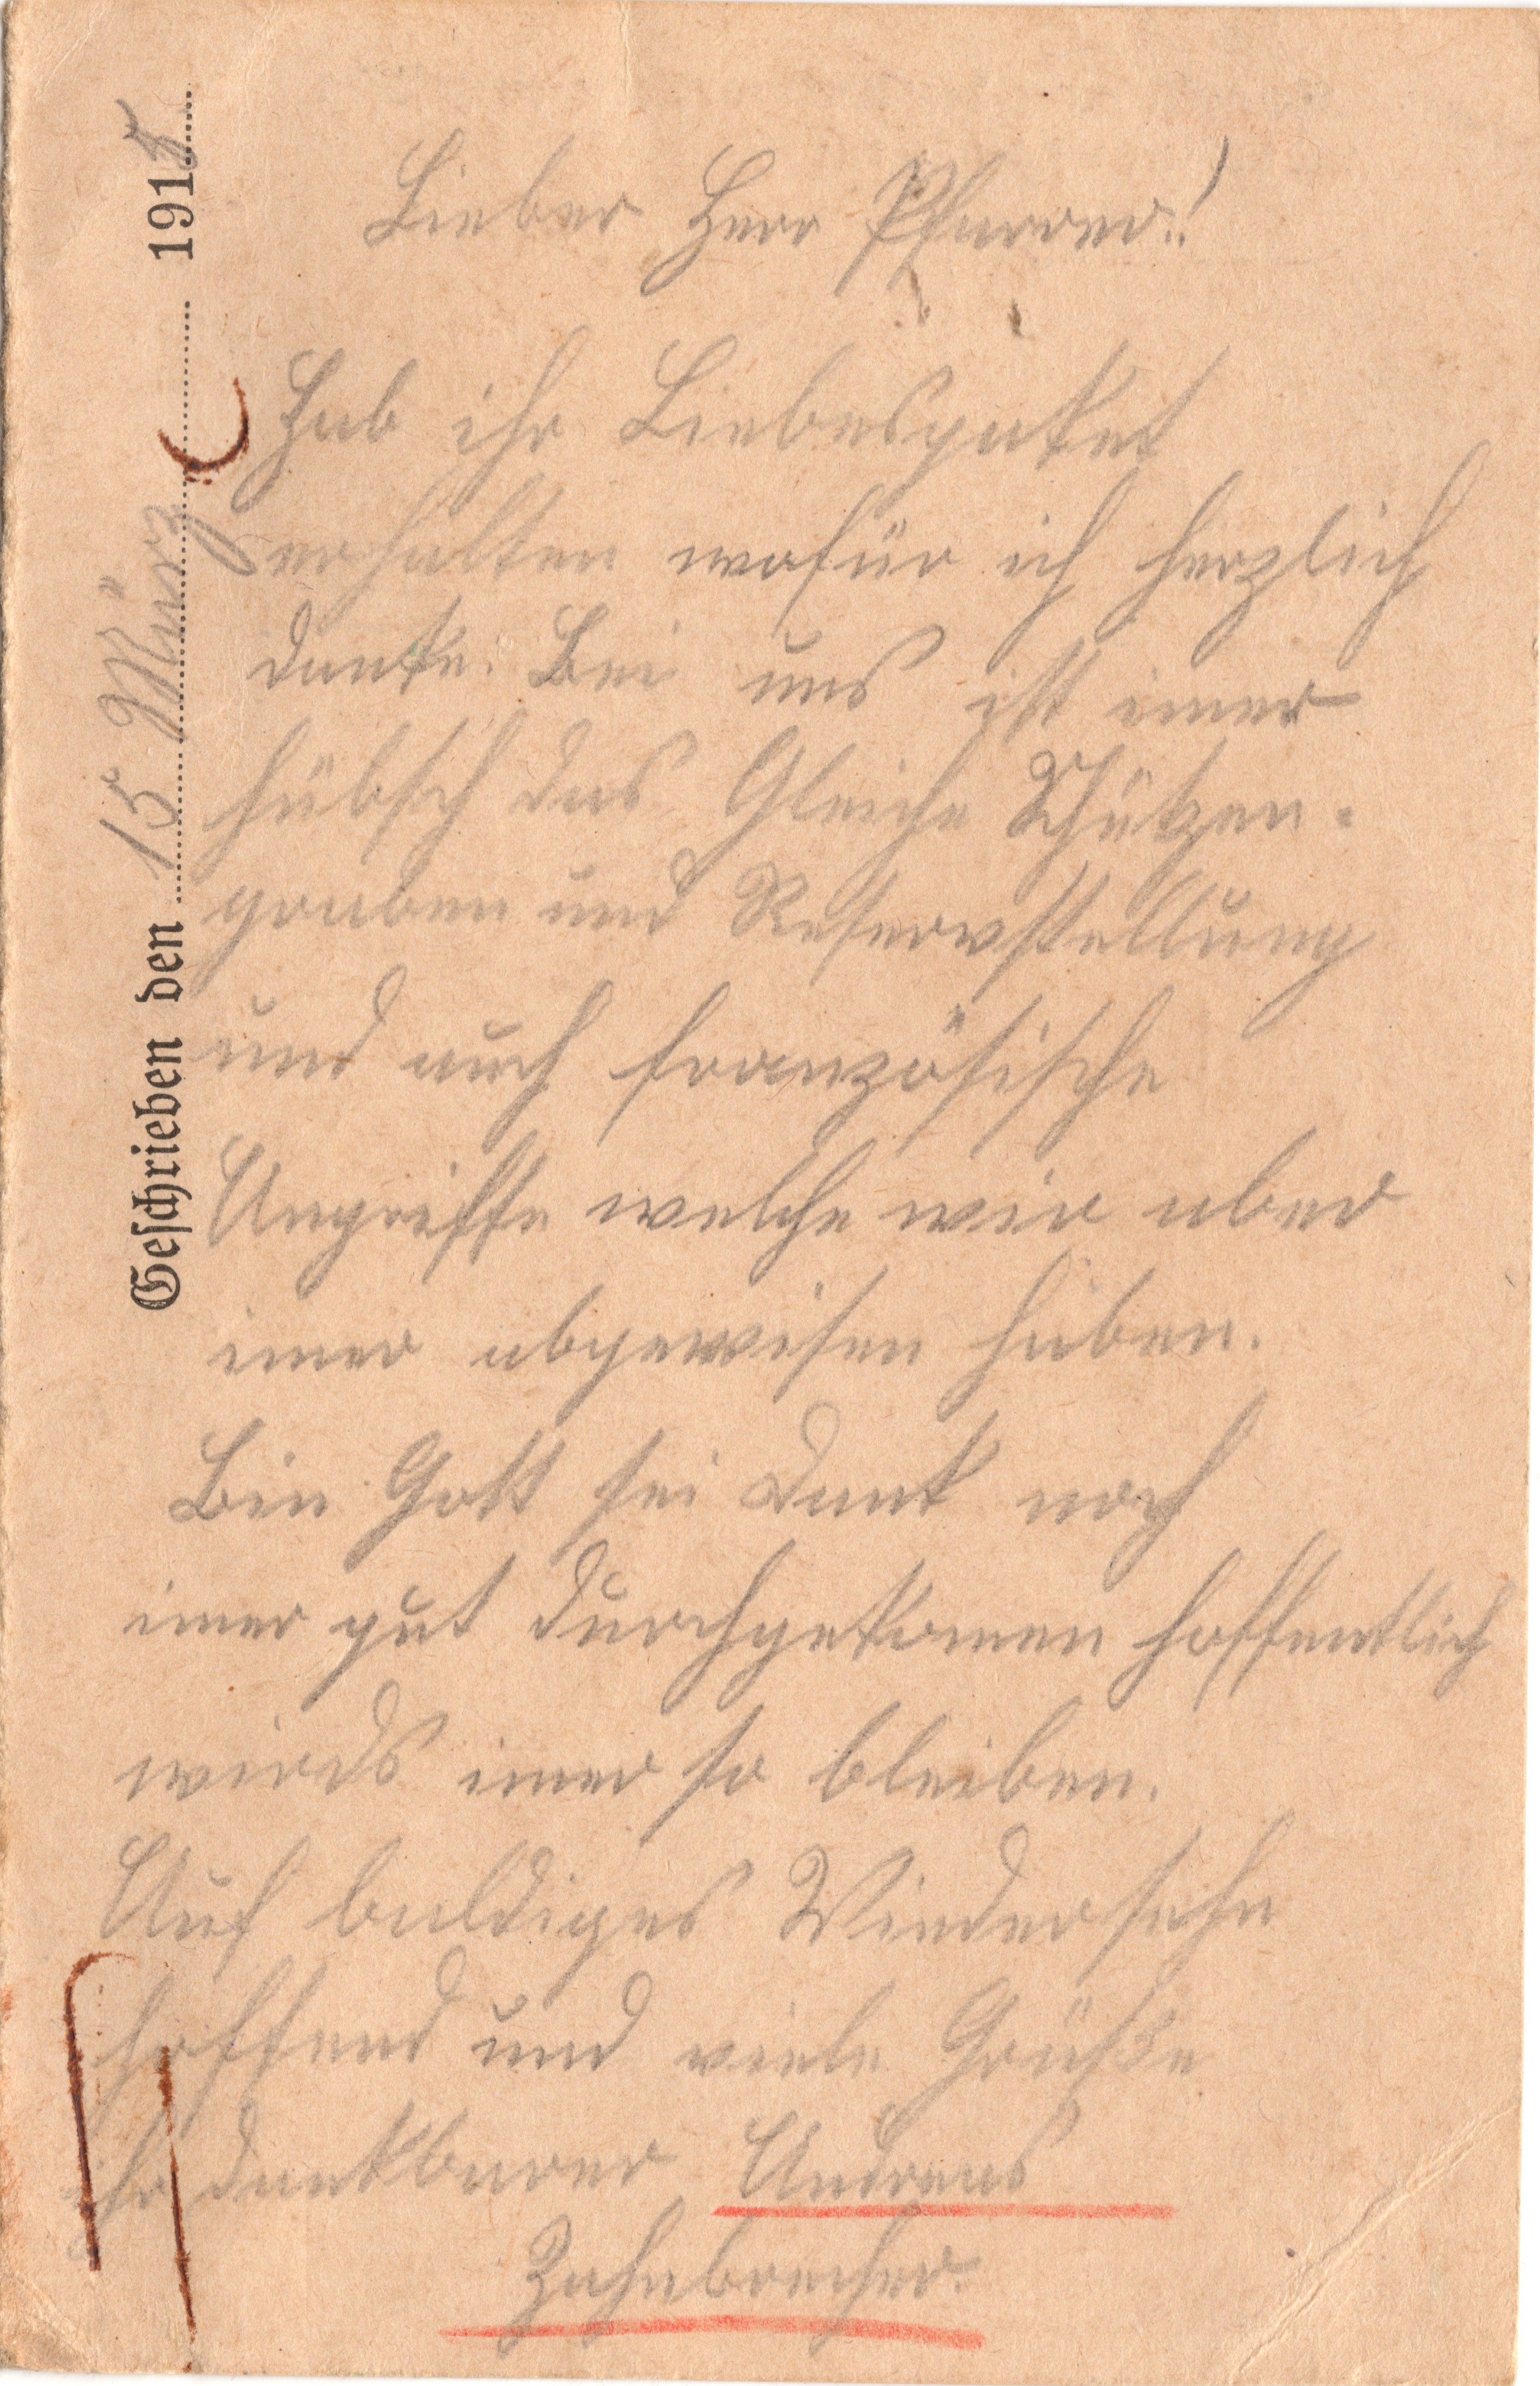 Geschrieben den 15 März 1915
Lieber Herr Pfarrer!
Hab ihr Liebespaket
erhalten wofür ich herzlich
danke. Bei uns ist imer
hübsch das Gleiche Schützen-
graben und Reservstellung
und auch französische
Angriffe welche wir aber
imer abgewisen haben.
Bin Gott sei Dank noch
imer gut durchgekomen hoffentlich
wirds imer so bleiben.
Auf baldiges Wiedersehn
hoffend und viele Grüße
ihr dankbarer Andreas
Zahnbrecher.